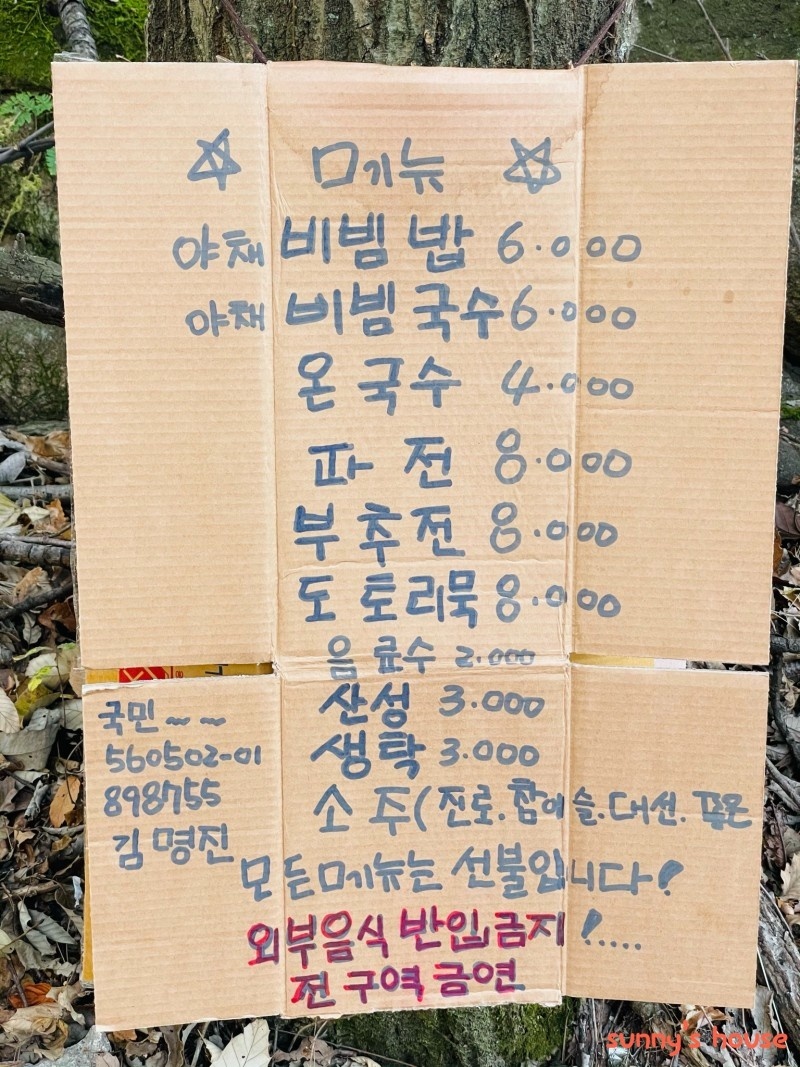 ☆ 메뉴 ☆
야채 비빔밥 6.000
야채 비빔국수 6.000
온국수 4.000
파전 8.000
부추전 8.000
도토리묵 8.000
음료수 2.000
산성 3.000
생탁 3.000
소주(진로.참이슬.대선.좋은
모든메뉴는 선불입니다!
외부음식 반입금지!.....
전구역금연
국민~~
560502-01
898755
김명진
sunny's house